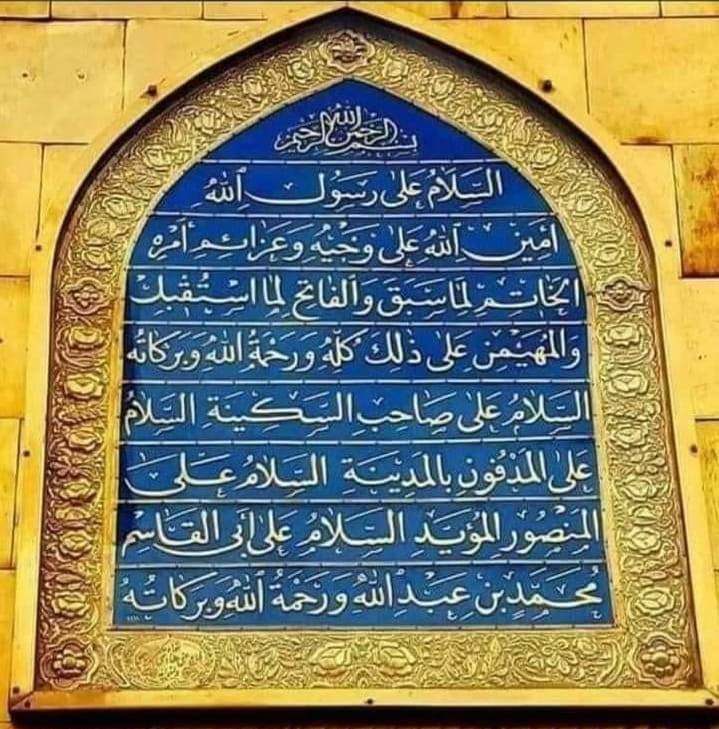 بسم الله الرحمن الرحيم
السَّلَامُ عَلىٰ رَسُولِ اللهِ
أَمِينِ اللهِ عَلىٰ وَحْيِهِ وَعَزائِمِ أَمْرِهِ
الخاتِمِ لِمَا سَبَقَ وَالفَاتِحِ لِمَا اسْتُقْبِلَ
وَالمُهَيْمِنِ عَلىٰ ذٰلِكَ كُلِّهِ وَرَحْمَةُ اللهِ وَبَرَكَاتُهُ
السَّلَامُ عَلىٰ صَاحِبِ السَّكِينَةِ السَّلَامُ
عَلَى المَدْفُونِ بِالمَدِينَةِ السَّلَامُ عَلَى
المَنْصُورِ المُؤَيَّدِ السَّلَامُ عَلىٰ أَبِي القَاسِمِ
مُحَمَّدِ بْنِ عَبْدِ اللهِ وَرَحْمَةُ اللهِ وَبَرَكَاتُهُ